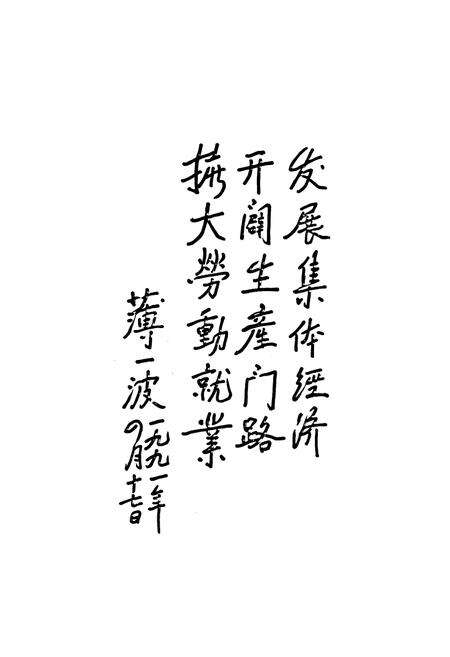 发展集体經济
开闢生產门路
擴大勞動就業
薄一波 一九九一年
四月十七日